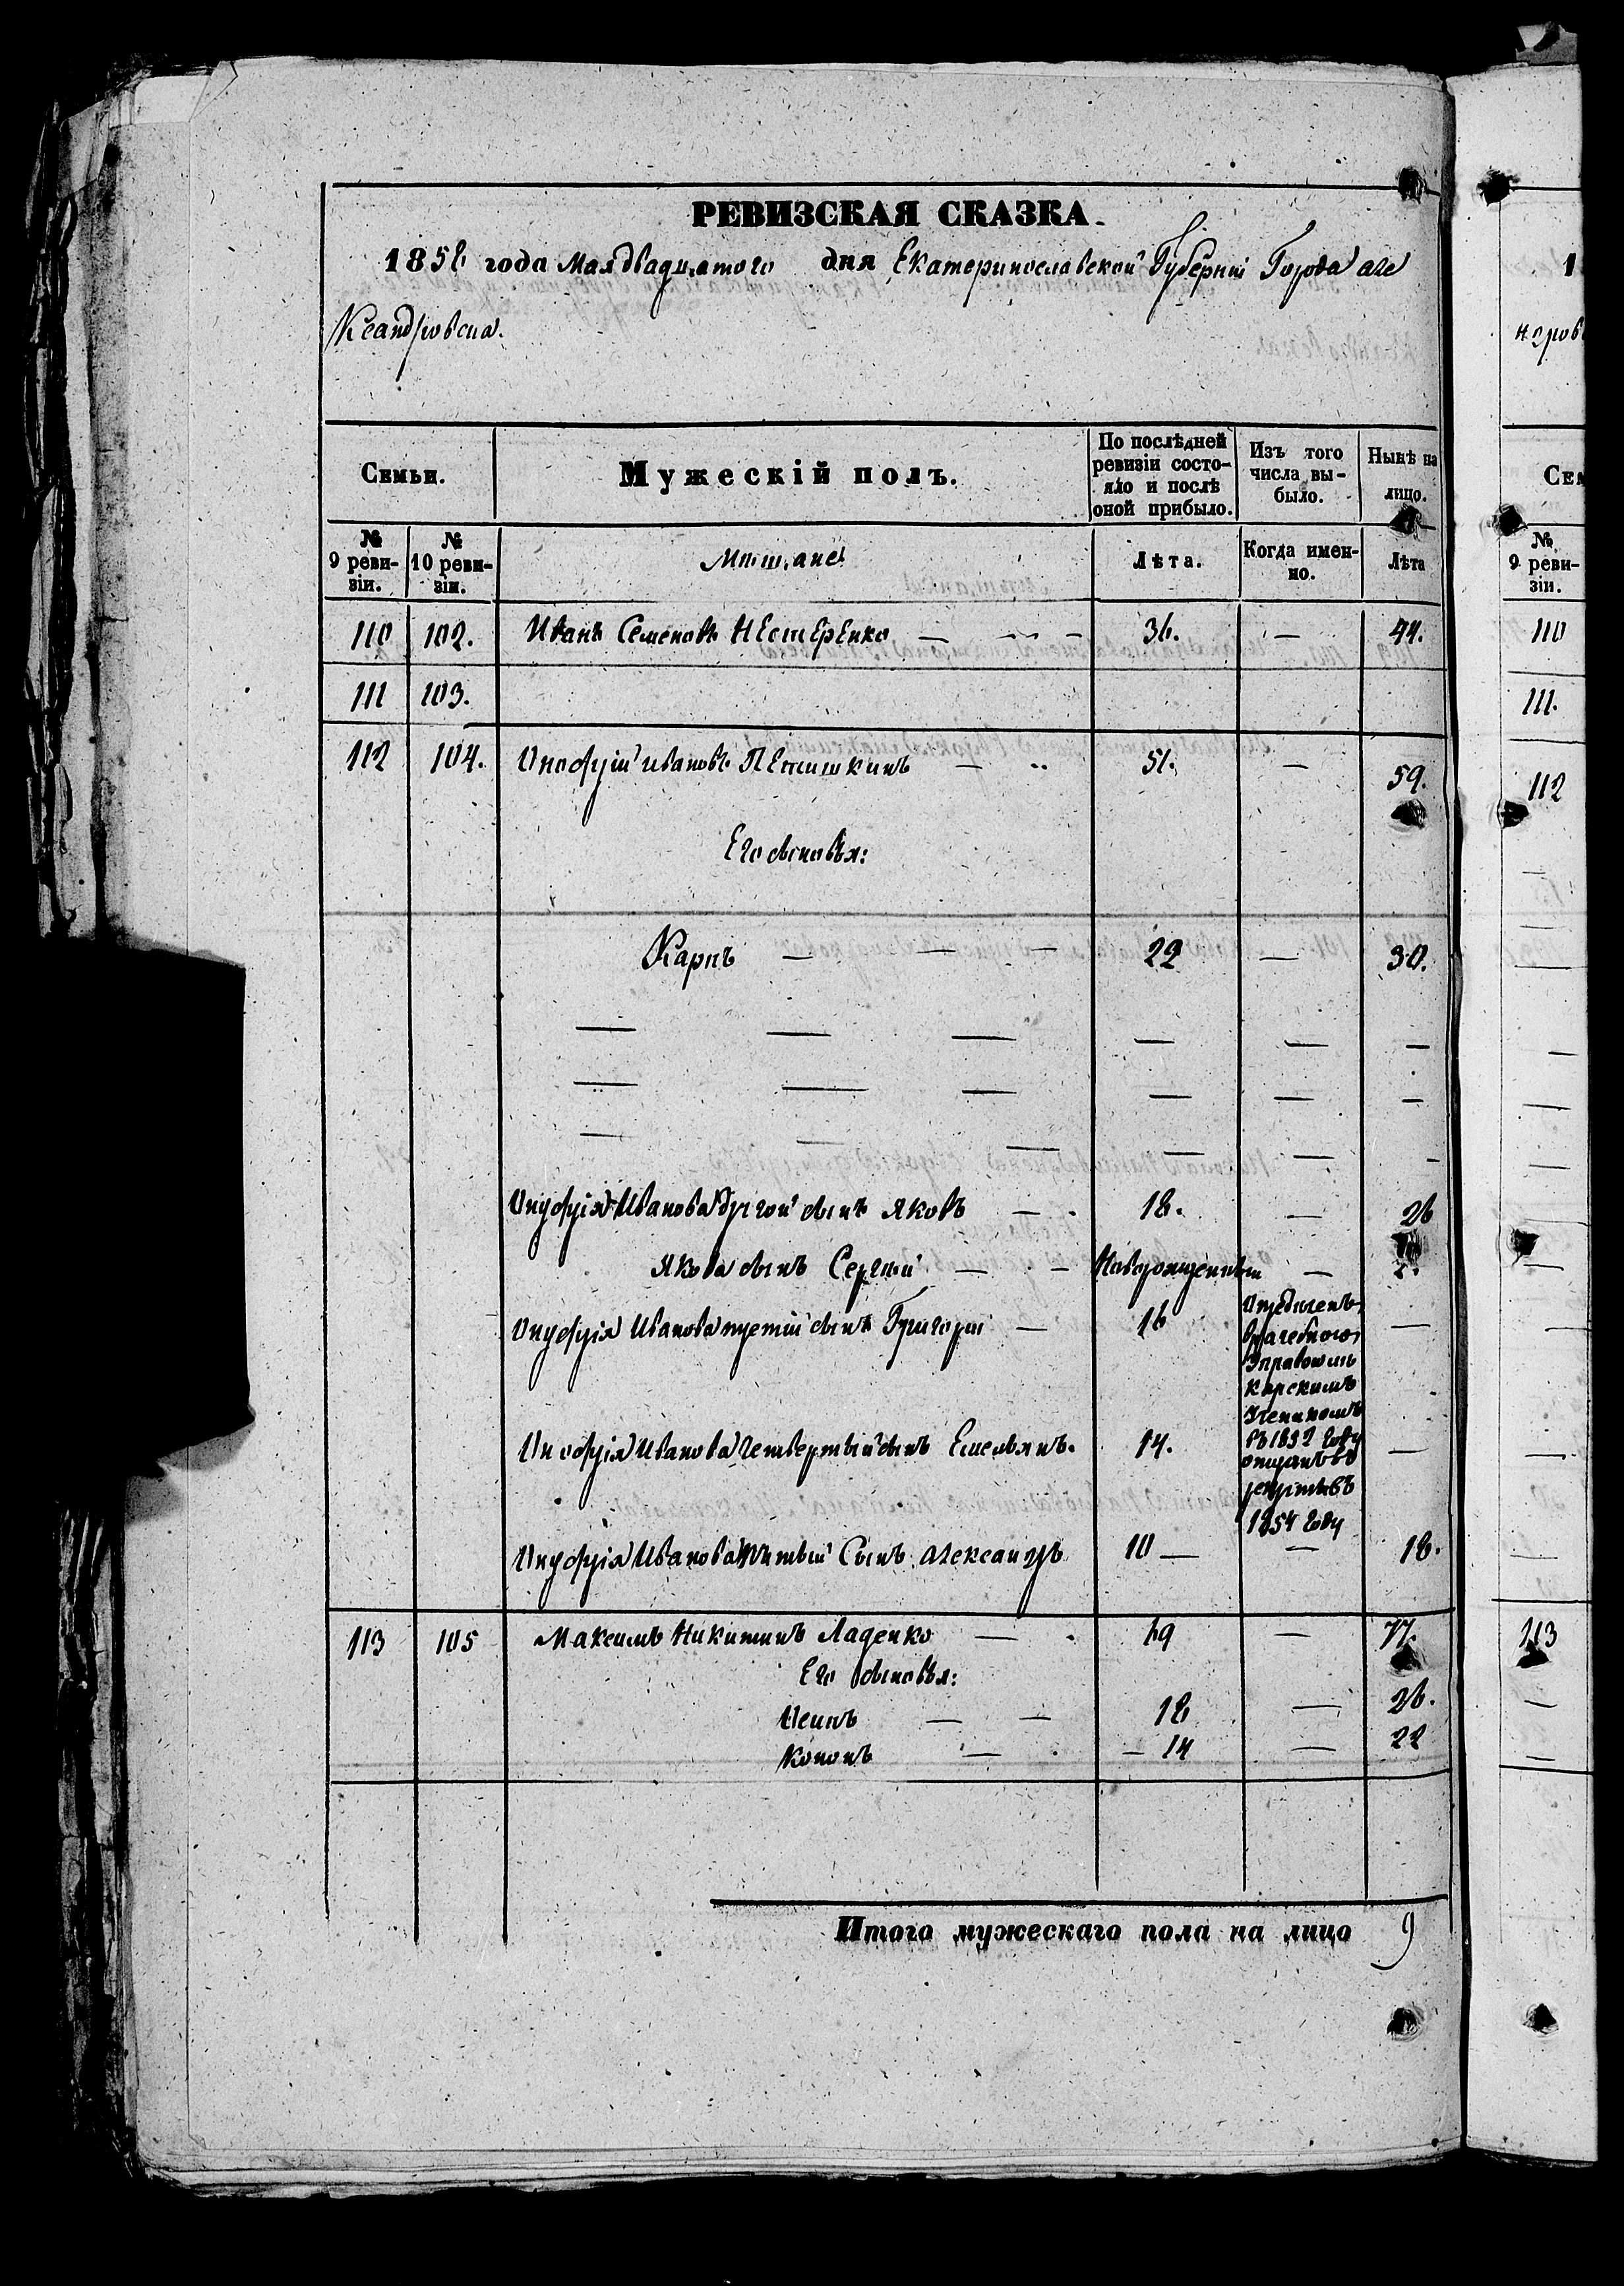 РЕВИЗСКАЯ СКАЗКА
1858 года Мая двадцатого дня Екатеринославской Губерніи Города Але
ксандровска.
Семьи. Мужескій полъ. По послѣдней ревизіи состояло и послѣ оной прибыло. Изъ того числа выбыло. Нынѣ на лицо.
№ 9 ревизіи. № 10 ревизіи. Мѣщане Лѣта. Когда именно. Лѣта
110 102. Иванъ Семеновъ Нестеренко — — 36. — 44.
111 103.
112 104. Онофрій Ивановъ Петишкинъ — 51. — 59.
Его сыновья:
Карпъ — — — 22 — 30.
— — — — — —
— — — — — —
— — — — — —
Онуфрія Иванова другой сынъ Яковъ — 18. — 26
Якова сынъ Сергій — — Новорожденный —
Онуфрія Иванова третій сынъ Григорій — 16 —
Опредѣленъ
врачебною
Управою
Ученикомъ
въ 1852 году
Онофрія Иванова четвертый сынъ Емельянъ. 14. —
отданъ въ
рекруты въ
1854 году
Онуфрія Иванова пятый Сынъ Александръ 10 — — 18.
113 105 Максимъ Никитинъ Ладенко — 69 — 77.
Его сыновья:
— — 18 — 26.
Кононъ — — 14 — 22
Итого мужескаго пола на лицо 9
1
Сем
№ 9 ревизіи.
110
111.
112
113